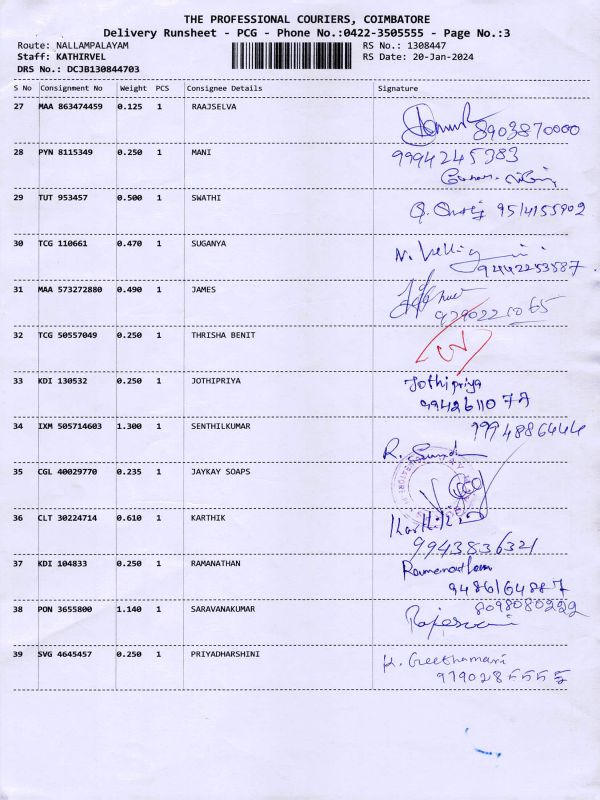 THE PROFESSIONAL COURIERS, COIMBATORE
Delivery Runsheet - PCG - Phone No.:0422-3505555 - Page No.:3
Route: NALLAMPALAYAM RS No.: 1308447
Staff: KATHIRVEL RS Date: 20-Jan-2024
DRS No.: DCJB130844703
S No Consignment No Weight PCS Consignee Details Signature
27 MAA 863474459 0.125 1 RAAJSELVA
8903870000
28 PYN 8115349 0.250 1 MANI 9994245383
29 TUT 953457 0.500 1 SWATHI
9514155902
30 TCG 110661 0.470 1 SUGANYA
9442253587
31 MAA 573272880 0.490 1 JAMES
32 TCG 50557049 0.250 1 THRISHA BENIT
33 KDI 130532 0.250 1 JOTHIPRIYA Jothipriya
34 IXM 505714603 1.300 1 SENTHILKUMAR
35 CGL 40029770 0.235 1 JAYKAY SOAPS
36 CLT 30224714 0.610 1 KARTHIK
9943836321
37 KDI 104833 0.250 1 RAMANATHAN Ramanathan
9486164887
38 PON 3655800 1.140 1 SARAVANAKUMAR 8098080222
Rajeswari
39 SVG 4645457 0.250 1 PRIYADHARSHINI K. Geethamani